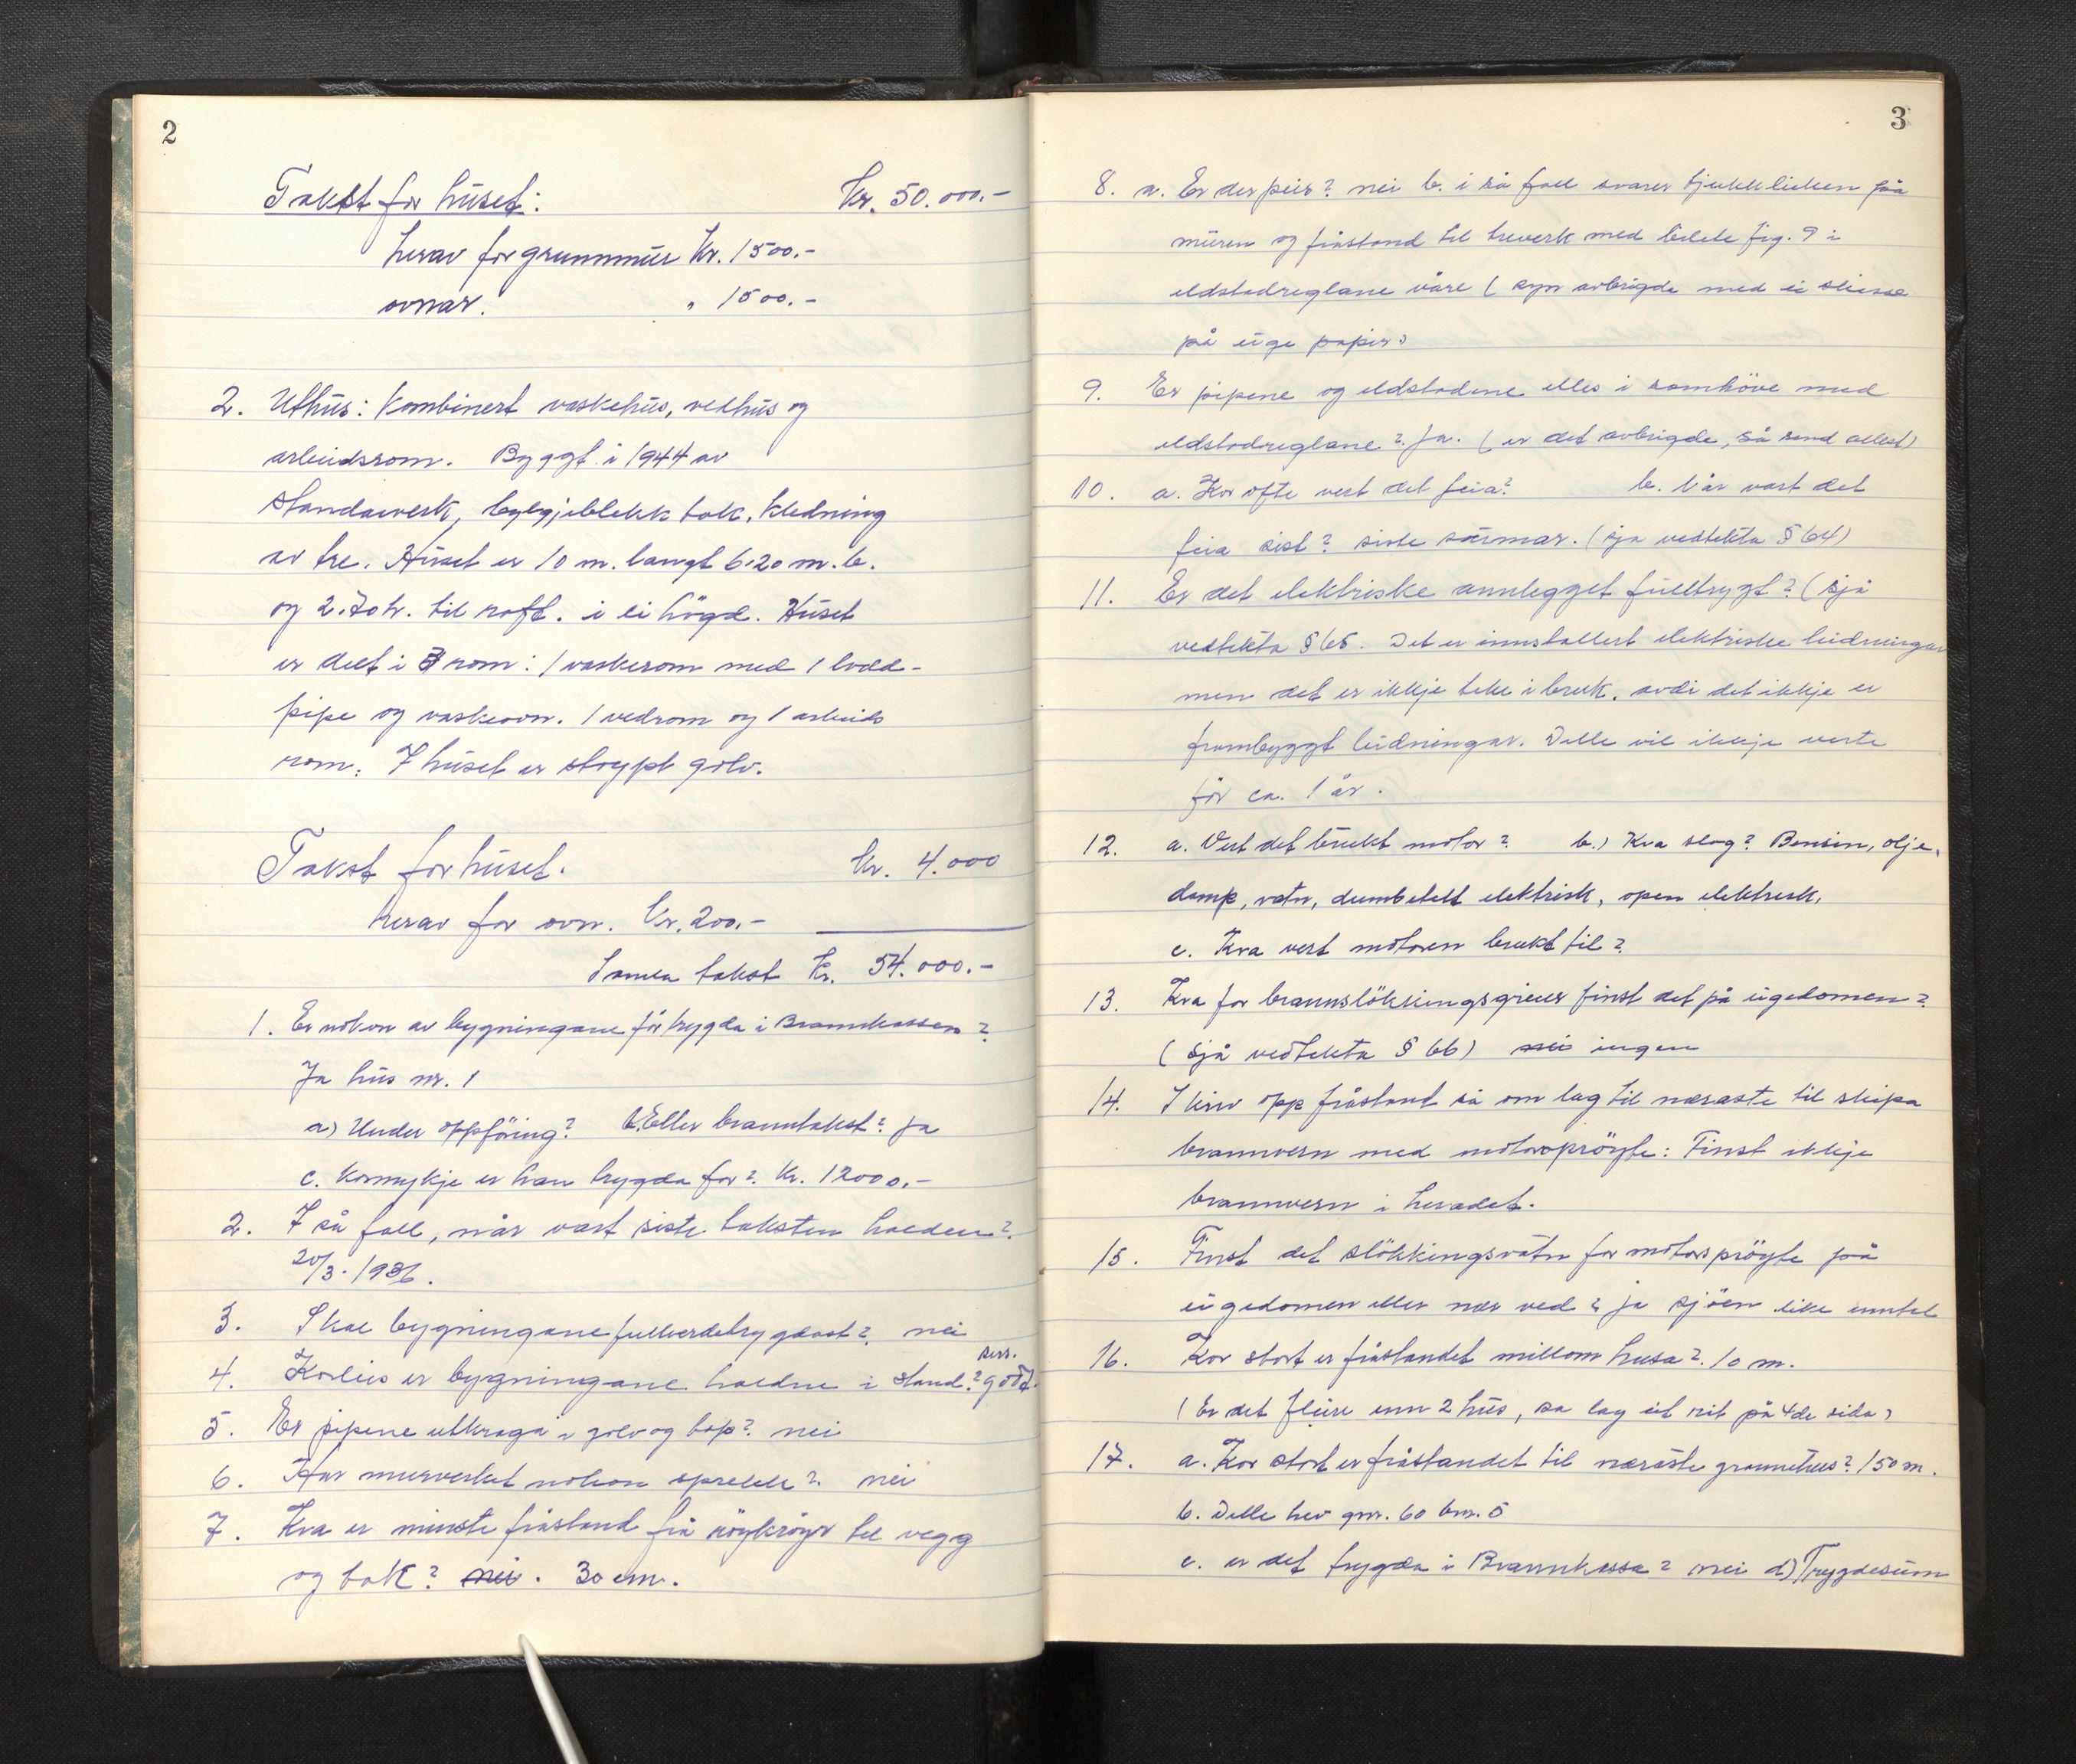 2
Takst for huset: Kr. 50.000.-
herav for grunnmur Kr. 1500.-
ovnar. " 1500.-
2. Uthus: Kombinert vaskehus, vedhus og
arbeidsrom. Byggt i 1944 av
standarverk, bylgjeblekk tak, kledning
av tre. Huset er 10 m. langt 6.20 m. b.
og 2.70 h. til raft. i ei högd. Huset
er delt i 3 rom: 1 vaskerom med 1 lodd-
pipe og vaskeovn. 1 vedrom og 1 arbeids
rom. I huset er stoypt golv.
Takst for huset. Kr. 4.000
herav for ovn. Kr. 200.-
Samla takst Kr. 54.000.-
1. Er nokon av bygningane för trygda i Brannkassen?
Ja hus nr. 1
a) Under oppföring? b. Eller branntakst? ja
c. Kormykje er han trygda for? Kr. 12000.-
2. I så fall, når vart siste taksten halden?
20/3. 1936.
3. Skal bygningane fullverdetrygdast? nei
4. Korleis er bygningane haldne i stand? sers. godt.
5. Er pipene utkraga i golv og tak? nei
6. Har murverket nokon sprekk? nei
7. Kva er minste fråstand frå röykröyr til vegg
og tak? nei. 30 cm.
3
8. a. Er der peis? nei b. i så fall svarer tjukkleiken på
muren og fråstand til treverk med bilete fig. 9 i
eldstadreglane våre ( syn avbrigde med ei skisse
på eige papir)
9. Er pipene og eldstadene elles i samhöve med
eldstadreglane? Ja. ( er det avbrigde, så send
10. a. Kor ofte vert det feia? b. Når vart det
feia sist? siste sumar. (sja vedtekta § 64)
11. Er det elektriske annlegget fulltrygt? ( sjå
vedtekta § 65. Det er innstallert elektriske leidningar
men det er ikkje teke i bruk, avdi det ikkje er
frambyggt leidningar. Dette vil ikkje verte
för ca. 1 år.
12. a. Vert det brukt motor? b.) Kva slag? Bensin, olje,
damp, vatn, dumbetett elektrisk, open elektrisk,
c. Kva vert motoren brukt til?
13. Kva for brannslökkingsgreier finst det på eigedomen?
( Sjå vedtekta § 66) nei ingen
14. Skriv opp fråstand så om lag til næraste til skipa
brannvern med motorspröyte: Finst ikkje
brannvern i heradet.
15. Finst det slökkingsvatn for motorspröyte på
eigedomen eller nær ved? ja sjöen like inntil
16. Kor stort er fråstandet millom husa? 10 m.
( Er det fleire enn 2 hus, sa lag eit rit på 4de sida)
17. a. Kor stort er fråstandet til næraste grannehus? 150 m.
b. Dette hev gnr. 60 bnr. 5
c. er det trygda i Brannkassa? nei d) Trygdesum